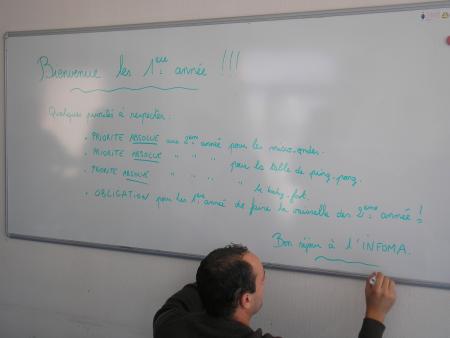 Bienvenue les 1ère année !!!
Quelques priorités à respecter:
• PRIORITE ABSOLUE aux 2ème année pour les micro.ondes.
• PRIORITE ABSOLUE " " " pour la table de ping.pong.
• PRIORITE ABSOLUE " " " " le baby.foot.
• OBLIGATION pour les 1ère année de faire la vaisselle des 2ème année !
Bon séjour à l'INFOMA.